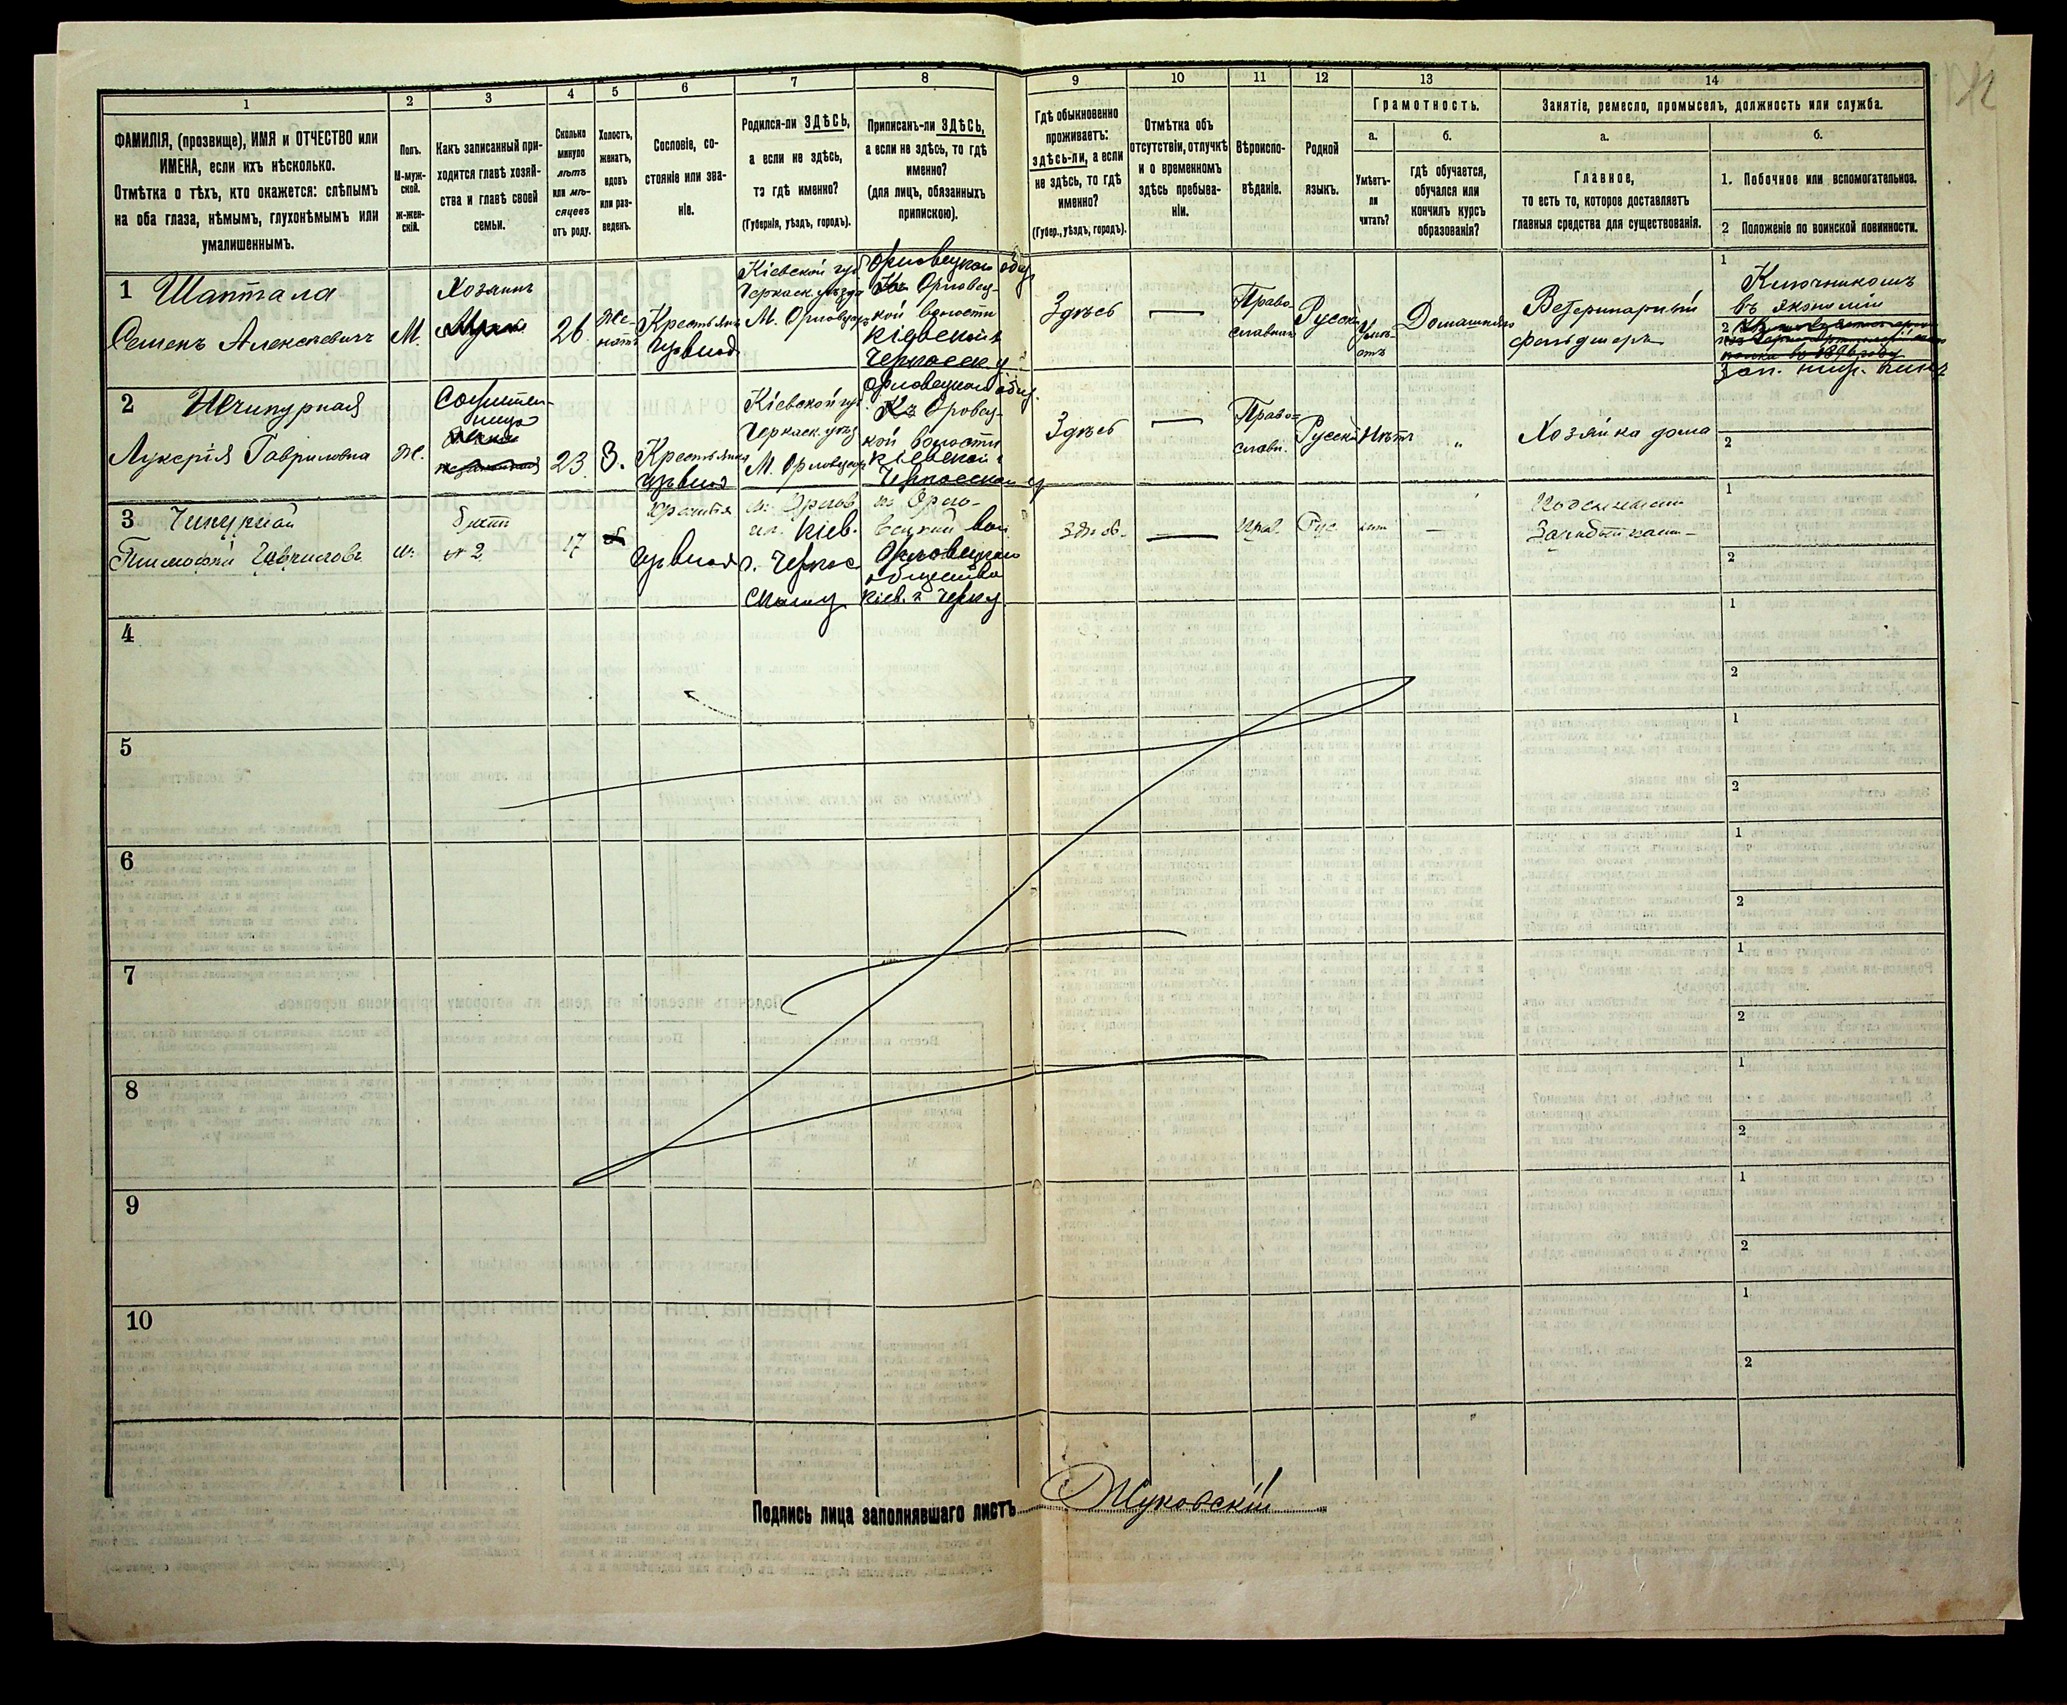 1
2
3
4
5
6
7
8
9
10
11
12
13
14
ФАМИЛІЯ, (прозвище), ИМЯ и ОТЧЕСТВО или
ИМЕНА, если ихъ нѣсколько.
Отмѣтка о тѣхъ, кто окажется: слѣпымъ
на оба глаза, нѣмымъ, глухонѣмымъ или
умалишеннымъ.
Полъ.
М-муж-
ской.
Ж-жен-
скій.
Какъ записанный при-
ходится главѣ хозяй-
ства и главѣ своей
семьи.
Сколько
минуло
лѣтъ
или мѣ-
сяцевъ
отъ роду.
Холостъ,
женатъ,
вдовъ
или раз-
веденъ.
Сословіе, со-
стояніе или зва-
ніе.
Родился-ли ЗДѢСЬ,
а если не здѣсь,
то гдѣ именно?
(Губернія, уѣздъ, городъ).
Приписанъ-ли ЗДѢСЬ,
а если не здѣсь, то гдѣ
именно?
(для лицъ, обязанныхъ
припискою).
Гдѣ обыкновенно
проживаетъ:
здѣсь-ли, а если
не здѣсь, то гдѣ
именно?
(Губер., уѣздъ, городъ).
Отмѣтка объ
отсутствіи, отлучкѣ
и о временномъ
здѣсь пребыва-
ніи.
Вѣроиспо-
вѣданіе.
Родной
языкъ.
Грамотность.
а.
б.
Умѣетъ-
ли
читать?
гдѣ обучается,
обучался или
кончилъ курсъ
образованія?
Занятіе, ремесло, промыселъ, должность или служба.
а.
б.
Главное,
то есть то, которое доставляетъ
главныя средства для существованія.
1. Побочное или вспомогательное.
2 Положеніе по воинской повинности.
1 Шаптала
Семенъ Алексѣевичъ
М.
Хозяинъ
26
Же-
натъ
Крестьянинъ
Кіевской губ
Черкаск. уѣзда
М. Орловецъ
Орловецкаго общ.
Къ Орловец-
кой волости
Кіевской г
Черкасск. у
Здѣсь
—
Право-
славный
Русскій
Умѣ-
етъ
Домашнее
Ветеринарный
фельдшеръ
1
Ключникомъ
въ экономіи
2
Зап. ниж. чинъ
2 Нечипурная
Лукерія Гавриловна
Ж.
23
З.
Крестьянка
Кіевской гу.
Черкаск. уѣз
М. Орловецъ
Орловецкаго общ.
Къ Орловец-
кой волости
Кіевской г
Черкасскаго у
Здѣсь
—
Право-
славн.
Русскій
Нѣтъ
„
Хозяйка дома
2
3
Тимофей Гавриловъ
м.
братъ
№ 2
17
Кіев.
г. Черкас
Орловецкаго
общества
Кіев. г. Черк у
—
Прав.
Рус.
—
1
2
4
1
2
5
1
2
6
1
2
7
1
2
8
1
2
9
1
2
10
1
2
Подпись лица заполнявшаго листъ Жуковскій